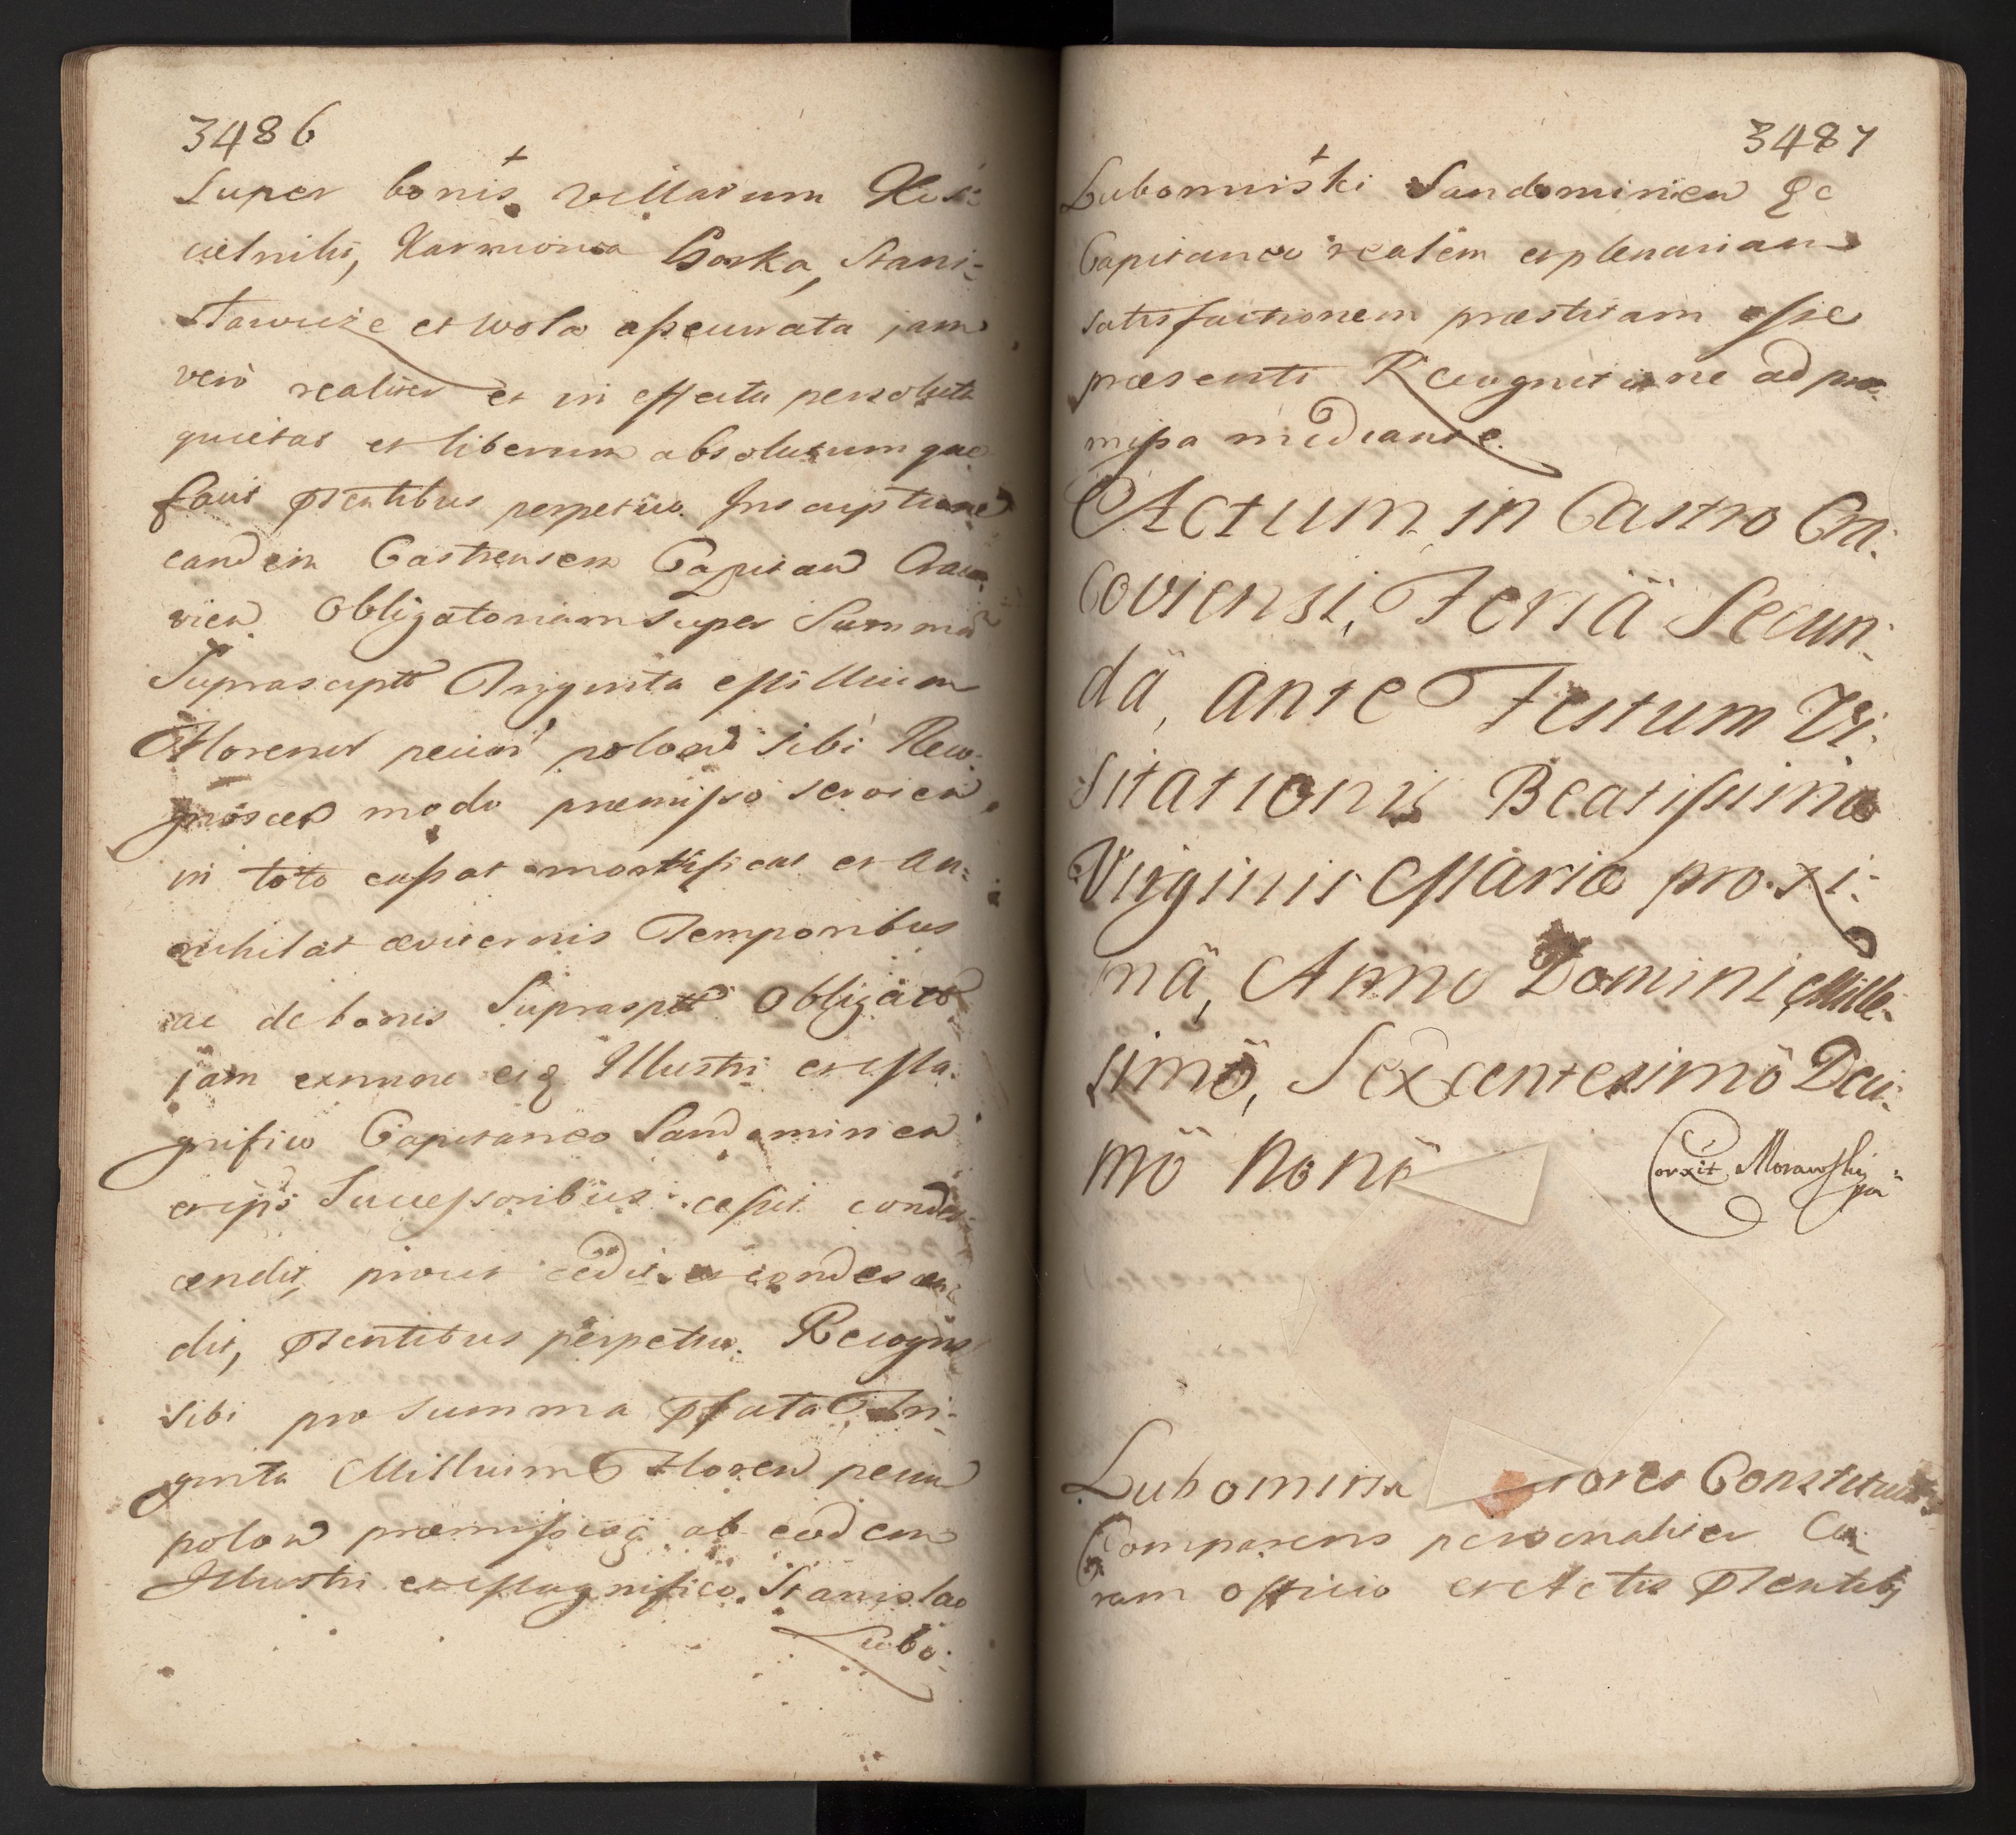 3486
Super bonis villarum Kos:
cielniki, Karmiowa Gorka, Stani:
stawice et Wola assecurata jam
vero realiter et in effectu persoluta
quietat et liberum absolutumque
facit psentibus perpetuo. Inscriptione
eandem Castrensem Capitan Craco:
vien Obligatoriam Super Summa
Suprascptt Triginta Millium
Florenor pecun polon sibi Reco:
gnoscen modo præmisso servien
in toto cassat mortificat et an:
nihilat æviternis Temporibus
ac de bonis Supraspctt Obligat
jam exnunc eiq Illustri et Ma:
gnifico Capitaneo Sandomirien
et ips Successoribus cessit condes:
cendit, prout cedit et condescen:
dit, psentibus perpetuo. Recogns
sibi pro summa pfata Tri:
ginta Millium Floren pecun
polon præmissisq ab eodem
Illustri et Magnifico Stanislao
Lubo:
3487
Lubomirski Sandomirien &c
Capitaneo realem et plenariam
satisfactionem præstitam esse
præsenti Recognitione ad præ:
missa mediante.
Actum in Castro Cra:
coviensi, Feriä Secun:
dä, ante Festum Vi:
sitationis Beatissimæ
Virginis Mariæ proxi:
mä, Anno Domini Mille:
simö, Sexcentesimö Deci:
mö Nonö
Corxit Morawski
Lubomirski tores Constituit
Comparens personaliter Co:
ram officio et Actis psentibq